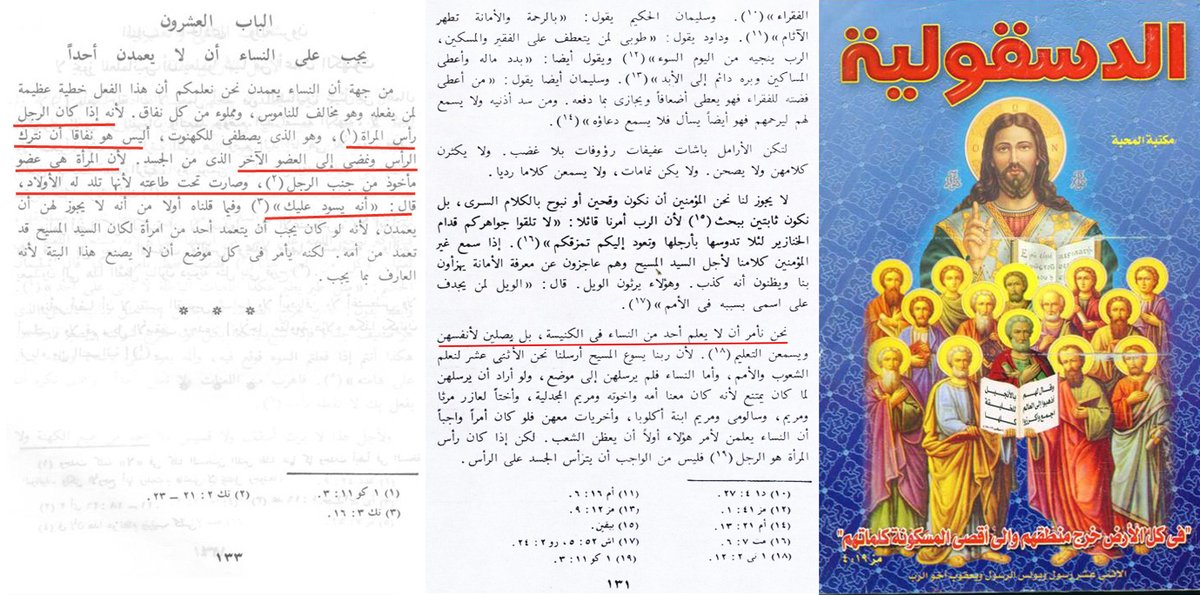 الدسقولية
مكتبة المحبة
"فى كل الأرض خرج منطقهم وإلى أقصى المسكونة كلماتهم"
مز ١٩ : ٤
الاثنى عشر رسول وبولس الرسول ويعقوب أخو الرب
الفقراء» (١٠). وسليمان الحكيم يقول: «بالرحمة والأمانة تطهر
الآثام» (١١). وداود يقول: «طوبى لمن يتعطف على الفقير والمسكين،
الرب ينجيه من اليوم السوء» (١٢) ويقول أيضا: «بدد ماله وأعطى
المساكين وبره دائم إلى الأبد» (١٣). وسليمان أيضا يقول: «من أعطى
فضته للفقراء فهو يعطى أضعافاً ويجازى بما دفعه. ومن سد أذنيه ولا يسمع
لهم ليرحمهم فهو أيضاً يسأل فلا يسمع دعاؤه» (١٤).
لتكن الأرامل باشات عفيفات رؤوفات بلا غضب. ولا يكثرن
كلامهن ولا يصحن. ولا يكن نمامات، ولا يسمعن كلاما رديا.
لا يجوز لنا نحن المؤمنين أن نكون وقحين أو نبوح بالكلام السرى، بل
نكون ثابتين ببحث (١٥) لأن الرب أمرنا قائلا: «لا تلقوا جواهركم قدام
الخنازير لئلا تدوسها بأرجلها وتعود إليكم تمزقكم» (١٦). إذا سمع غير
المؤمنين كلامنا لأجل السيد المسيح وهم عاجزون عن معرفة الأمانة يهزأون
بنا ويظنون أنه كذب. وهؤلاء يرثون الويل. قال: «الويل لمن يجدف
على اسمى بسببه فى الأمم» (١٧).
نحن نأمر أن لا يعلم أحد من النساء فى الكنيسة، بل يصلين لأنفسهن
ويسمعن التعليم (١٨). لأن ربنا يسوع المسيح أرسلنا نحن الأثنى عشر لنعلم
الشعوب والأمم، وأما النساء فلم يرسلهن إلى موضع، ولو أراد أن يرسلهن
لما كان يمتنع لأنه كان معنا أمه واخوته ومريم المجدلية، وأختا لعازر مرثا
ومريم، وسالومى ومريم ابنة أكلوبا، وأخريات معهن فلو كان أمراً واجباً
أن النساء يعلمن لأمر هؤلاء أولاً أن يعظن الشعب. لكن إذا كان رأس
المرأة هو الرجل (١٩) فليس من الواجب أن يترأس الجسد على الرأس.
(١٠) دا ٤ : ٢٧. (١١) أم ١٦ : ٦.
(١٢) مز ٤١ : ١. (١٣) مز ١١٢ : ٩.
(١٤) أم ٢١ : ١٣. (١٥) بيقين.
(١٦) مت ٧ : ٦. (١٧) اش ٥٢ : ٥، رو ٢ : ٢٤.
(١٨) ١ تى ٢ : ١٢. (١٩) ١ كو ١١ : ٣.
١٣١
الباب العشرون
يجب على النساء أن لا يعمدن أحداً
من جهة أن النساء يعمدن نحن نعلمكم أن هذا الفعل خطية عظيمة
لمن يفعله وهو مخالف للناموس، ومملوء من كل نفاق. لأنه إذا كان الرجل
رأس المرأة (١)، وهو الذى يصطفى للكهنوت، أليس هو نفاقا أن نترك
الرأس ونمضى إلى العضو الآخر الذى من الجسد. لأن المرأة هى عضو
مأخوذ من جنب الرجل (٢)، وصارت تحت طاعته لأنها تلد له الأولاد،
قال: «أنه يسود عليك» (٣) وفيما قلناه أولا من أنه لا يجوز لهن أن
يعمدن، لأنه لو كان يجب أن يتعمد أحد من امرأة لكان السيد المسيح قد
تعمد من أمه. لكنه يأمر فى كل موضع أن لا يصنع هذا البتة لأنه
العارف بما يجب.
* * *
(١) ١ كو ١١ : ٣. (٢) تك ٢ : ٢١ – ٢٣.
(٣) تك ٣ : ١٦.
١٣٣